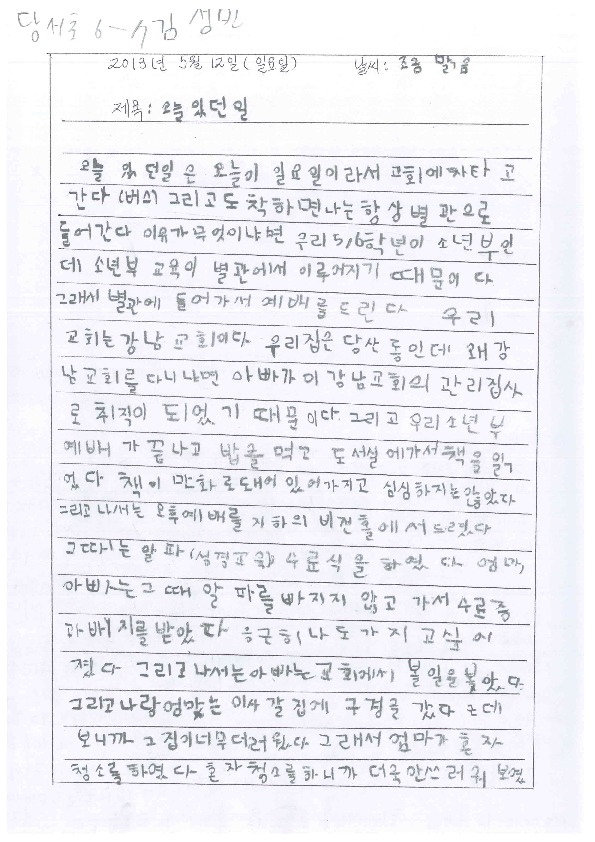 당서초 6-4 김성빈
2013년 5월 12일 (일요일) 날씨: 조금 맑음
제목: 오늘 있던 일
오늘 있던일은 오늘이 일요일이라서 교회에 차타고
간다 (버스) 그리고도착하면나는항상별관으로
들어간다 이유가무엇이냐면 우리5,6학년이 소년부인
데 소년부 교육이 별관에서 이루어지기 때문이다
그래서 별관에 들어가서 예배를드린다 우리
교회는강남교회이다 우리집은 당산동인데 왜강
남교회를다니냐면 아빠가이강남교회의 관리집사
로 취직이 되었기 때문이다. 그리고우리소년부
예배가 끝나고 밥을먹고 도서실에가서책을읽
었다 책이 만화로돼어있어가지고 심심하지는않았다
그리고나서는오후예배를지하의비전홀에서드렸다
그때는알파(성경교육)수료식을하였다 엄마,
아빠는그때알파를빠지지않고가서수료증
과배지를받았다 은근히나도가지고싶어
졌다 그리고나서는아빠는교회에서 볼일을봤았다.
그리고나랑엄맞는이사갈집에 구경을갔다 근데
보니까그집이너무더러웠다 그래서엄마가혼자
청소를하였다 혼자청소를하니까 더욱안쓰러워보였